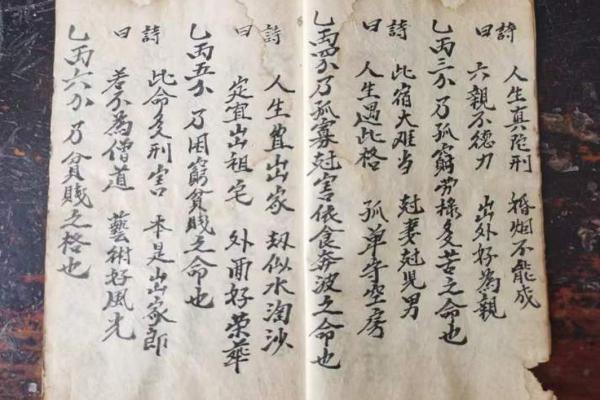 詩 人生真陀刑 婚烟不能成
曰 六親不德力 出外好為親
乙丙三分乃孤窮劳祿多苦之命也
詩 此宿大难当 尅妻尅児男
曰 人生遇此格 孤单守空房
乙丙四分乃孤寡尅害依食奔波之命也
詩 人生置出家 刼似水淘沙
曰 定宜出祖宅 外面好荣華
乙丙五分乃困窮貧賤之命也
詩 此命多刑害 本是出家郎
曰 若不為僧道 藝術好風光
乙丙六分乃貧賤之格也